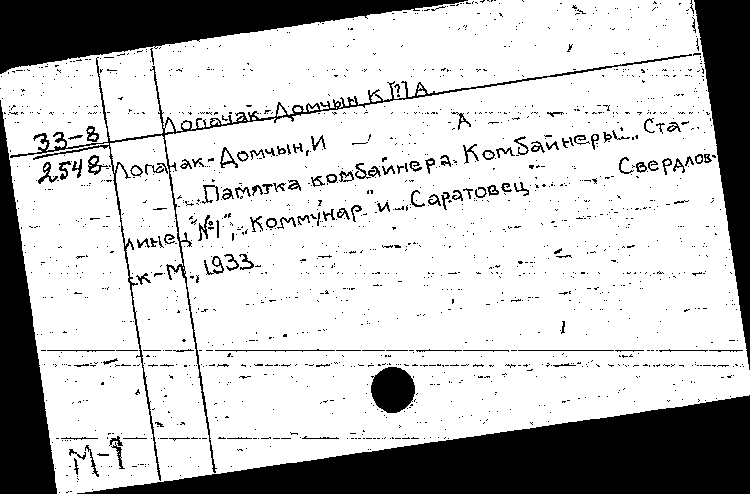 33-8
2548
Лопачак-Домчын, К А.
Лопачак-Домчын, И — А
Памятка комбайнера. Комбайнеры: „Ста-
линец №1", „Коммунар" и „Саратовец" Свердлов-
ск-М., 1933
М-9